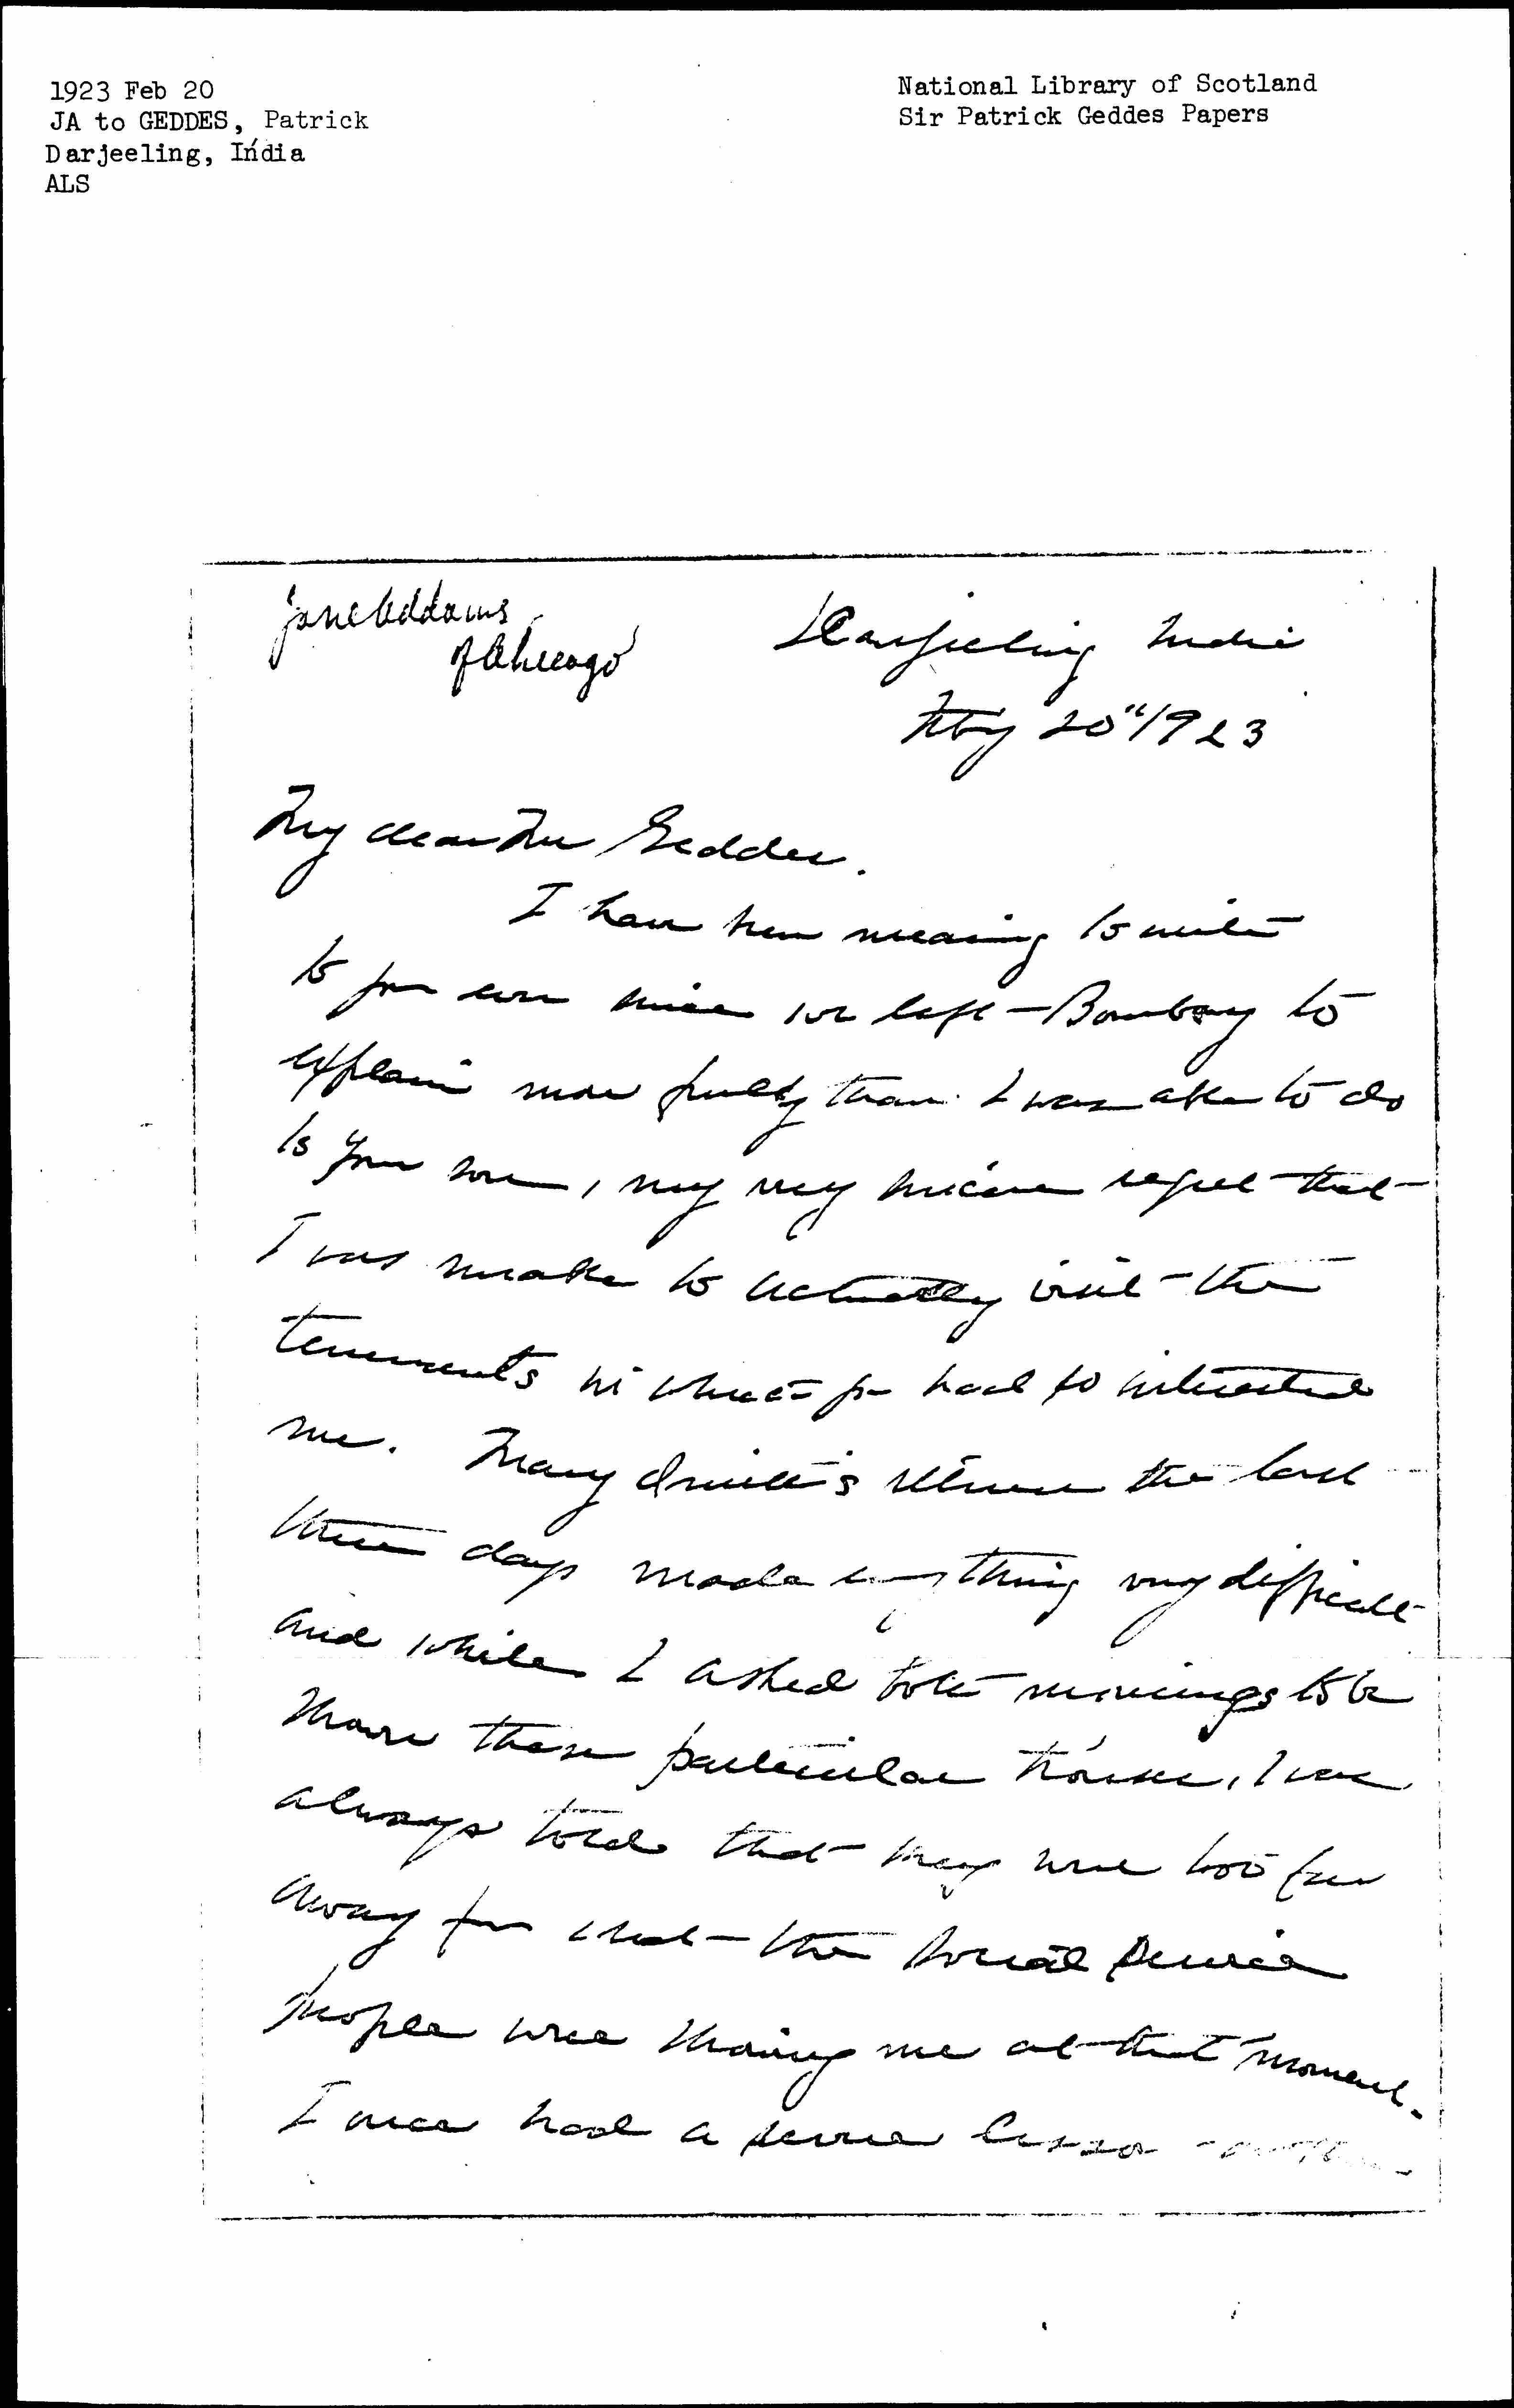 1923 Feb 20
JA to GEDDES, Patrick
Darjeeling, India
ALS
National Library of Scotland
Sir Patrick Geddes Papers
Jane Addams
of Chicago
Darjeeling India
Feb'y 20" 1923
My dear Mr Geddes.
I have been meaning to write
to you ever since we left Bombay to
explain more fully than I was able to do
to your son, my very sincere regret that
I was unable to actually visit the
tenements in which you had so interested
me. Mary Smith's illness the last
three days made everything very difficult
and while I asked both mornings to be
shown these particular houses, I was
always told that they were too far
away from what the Social Service
people were showing me at that moment.
I once had a severe lesson